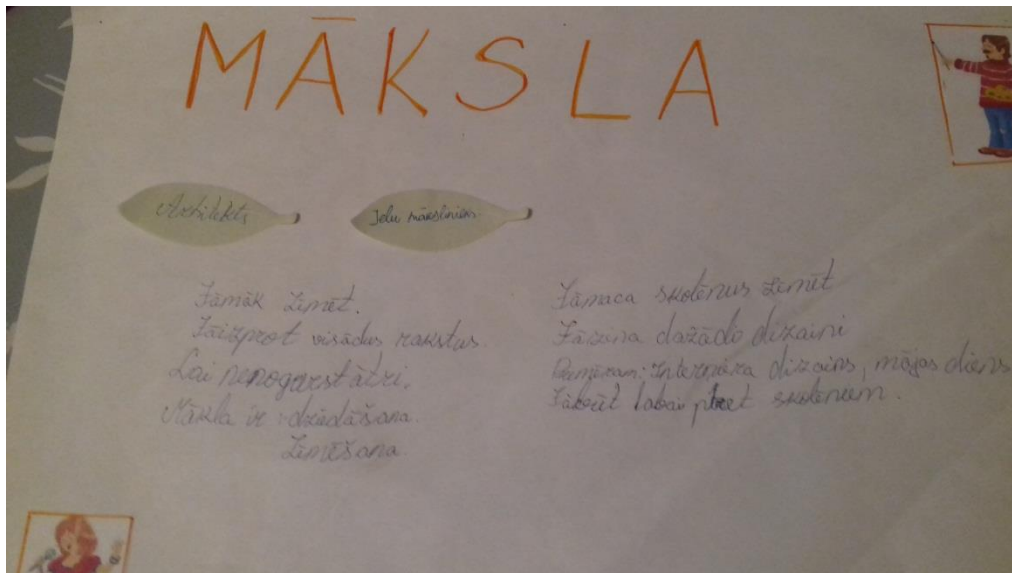 MĀKSLA
Arhitekts
Ielu mākslinieks
Jāmāk zīmēt.
Jāizprot visādus rakstus.
Lai nenogurst ātri.
Mākla ir dziedāšana.
Zīmēšana
Jāmaca skolēnus zīmēt
Jāzina dažādo dizaini
Interjēra dizains, mājas
labai pret skolēniem.